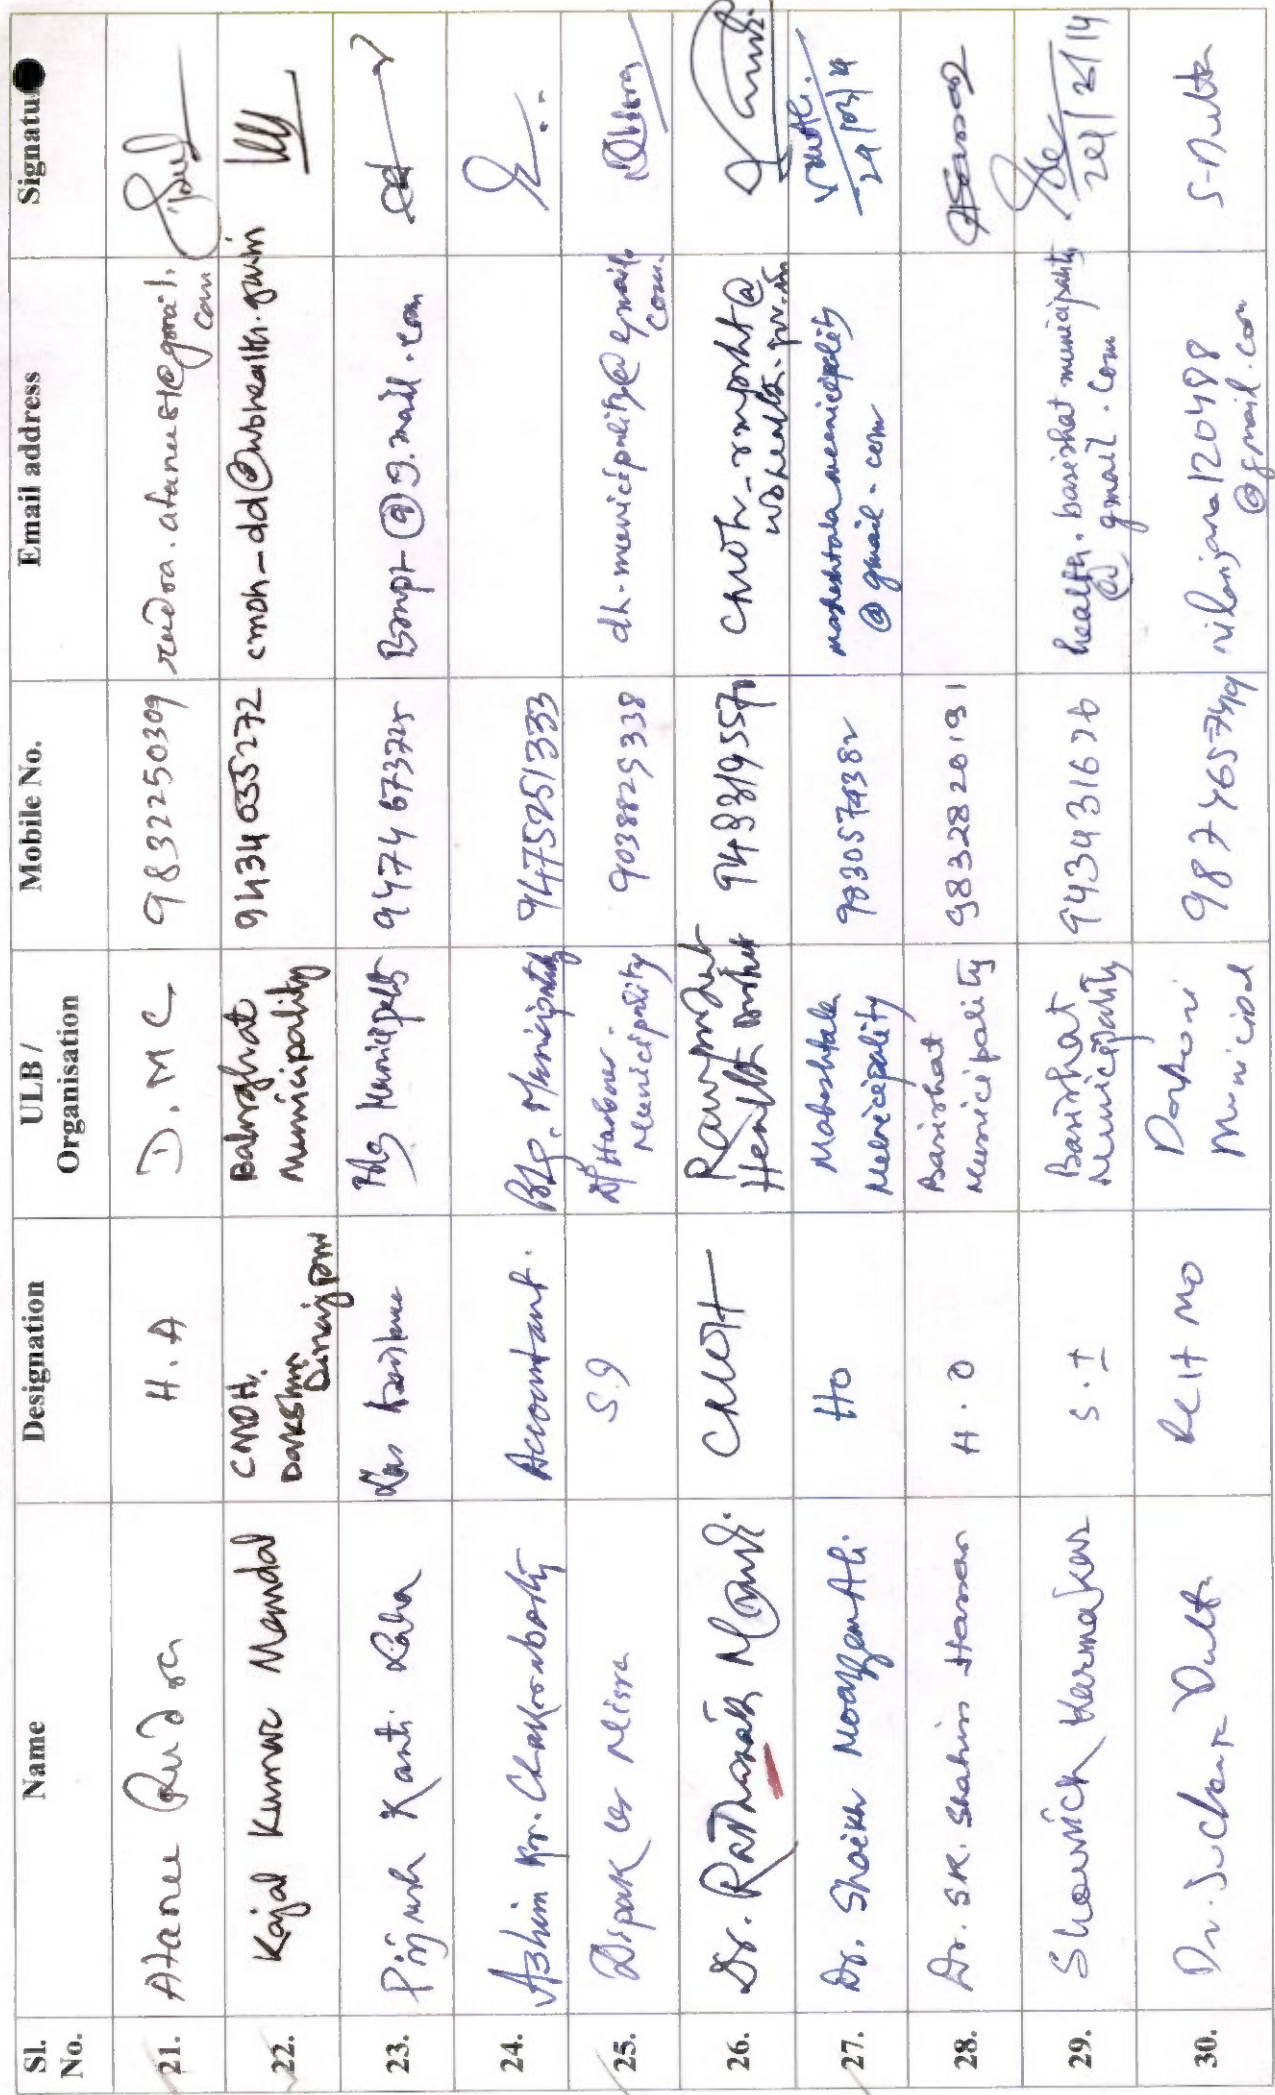 Sl. No. Name Designation ULB / Organisation Mobile No. Email address Signatu
21. Atanu Rudra H.A D.M.C 9832250309 rudra.atanu81@gmail.com
22. Kajal Kumar Mandal CMOH, Dakshin Dinajpur Balurghat Municipality 9434035272 cmoh-dd@wbhealth.gov.in
23. Pijush Kanti Saha Municipality 9474673725
24. Ashim Kr. Chakraborty Accountant. Blg. Municipality 9475251333
25. Dipak Kr Misra S.I Df Harbour Municipality 9038825338 dh.municipality@gmail.com
26. Dr. Rampurhat Health District CMOH cmoh-rmprht@wbhealth.gov.in
27. Dr. Shaikh Moazzem Ali HO Maheshtala Municipality 9830574382 maheshtalamunicipality@gmail.com 24/03/14
28. Dr. SK. Shahin Hassan H.O Basirhat Municipality 9832820191
29. Shouvick Karmakar S.I Basirhat Municipality 9434316726 health.basirhatmunicipality@gmail.com
30. Dr. Dutta MO Municipal nilanjana120488@gmail.com S. Dutta